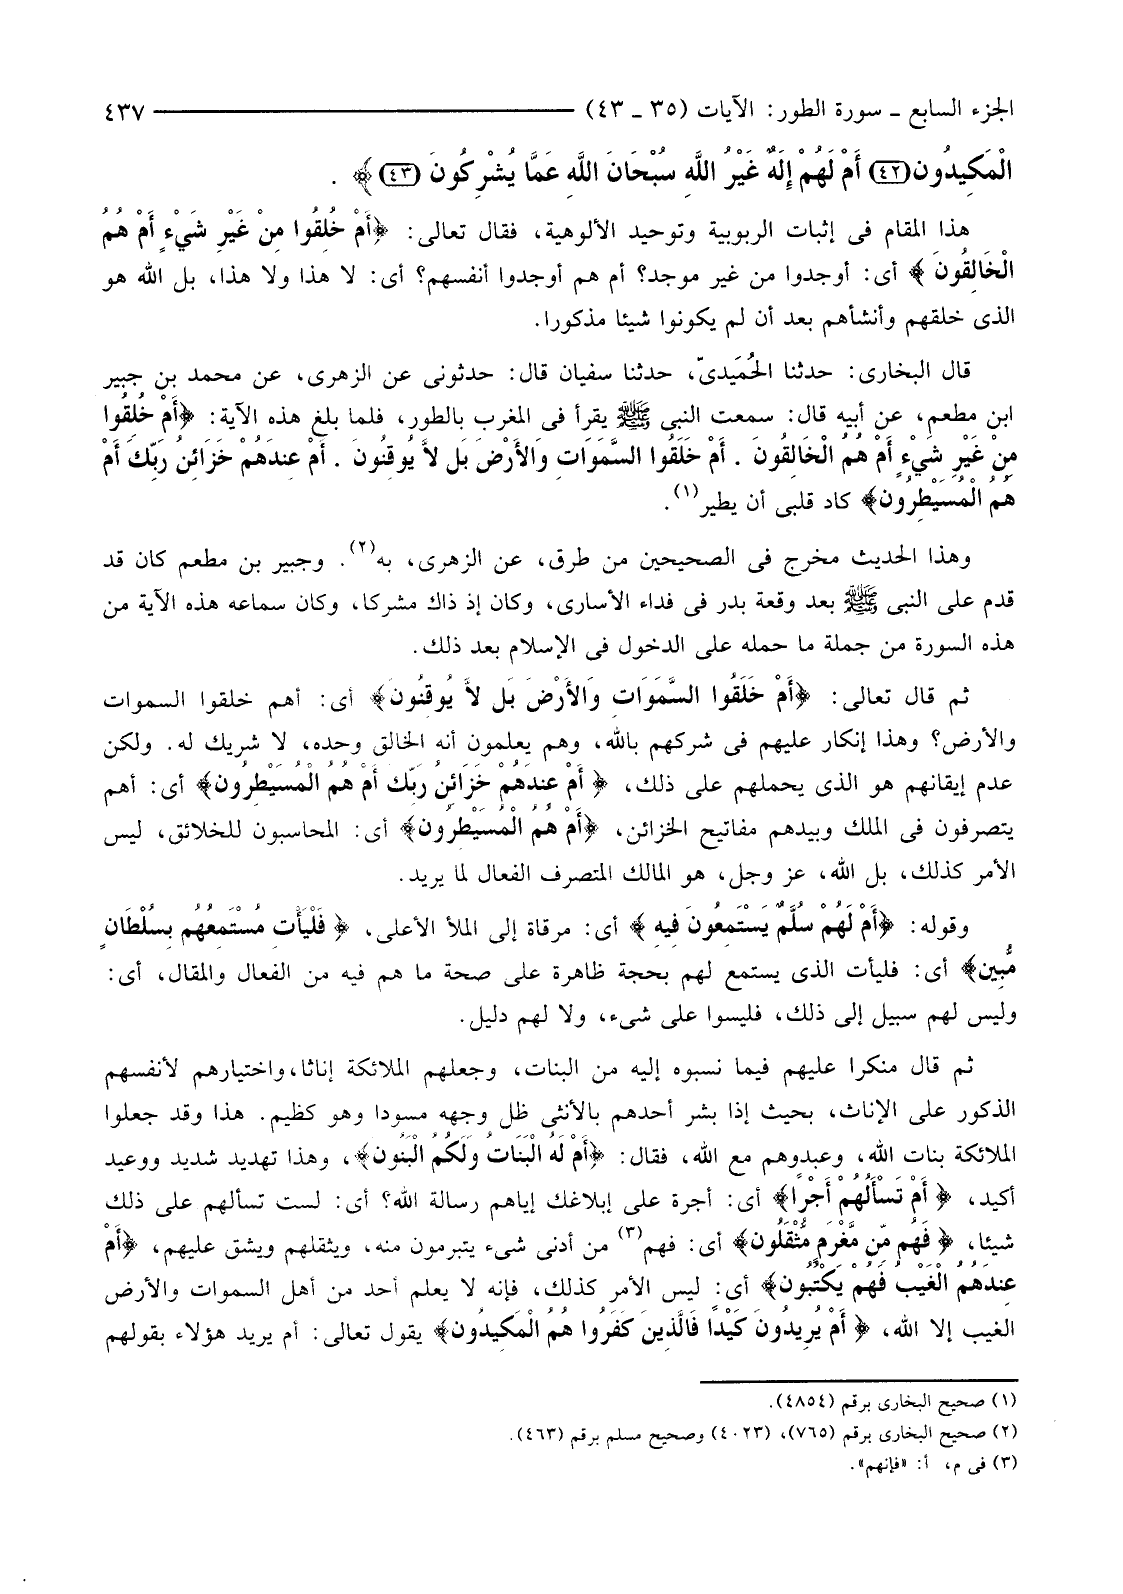 الجزء السابع ـ سورة الطور: الآيات (٣٥ ـ ٤٣) ٤٣٧
الْمَكِيدُونَ (٤٢) أَمْ لَهُمْ إِلَهٌ غَيْرُ اللَّهِ سُبْحَانَ اللَّهِ عَمَّا يُشْرِكُونَ (٤٣) ﴾ .
هذا المقام فى إثبات الربوبية وتوحيد الألوهية، فقال تعالى: ﴿أَمْ خُلِقُوا مِنْ غَيْرِ شَيْءٍ أَمْ هُمُ
الْخَالِقُونَ ﴾ أى: أوجدوا من غير موجد؟ أم هم أوجدوا أنفسهم؟ أى: لا هذا ولا هذا، بل الله هو
الذى خلقهم وأنشأهم بعد أن لم يكونوا شيئا مذكورا.
قال البخارى: حدثنا الحُمَيدىّ، حدثنا سفيان قال: حدثونى عن الزهرى، عن محمد بن جبير
ابن مطعم، عن أبيه قال: سمعت النبى ﷺ يقرأ فى المغرب بالطور، فلما بلغ هذه الآية: ﴿أَمْ خُلِقُوا
مِنْ غَيْرِ شَيْءٍ أَمْ هُمُ الْخَالِقُونَ . أَمْ خَلَقُوا السَّمَوَاتِ وَالأَرْضَ بَل لاَّ يُوقِنُونَ . أَمْ عِندَهُمْ خَزَائِنُ رَبِّكَ أَمْ
هُمُ الْمُسَيْطِرُونَ﴾ كاد قلبى أن يطير(١).
وهذا الحديث مخرج فى الصحيحين من طرق، عن الزهرى، به(٢). وجبير بن مطعم كان قد
قدم على النبى ﷺ بعد وقعة بدر فى فداء الأسارى، وكان إذ ذاك مشركا، وكان سماعه هذه الآية من
هذه السورة من جملة ما حمله على الدخول فى الإسلام بعد ذلك.
ثم قال تعالى: ﴿أَمْ خَلَقُوا السَّمَوَاتِ وَالأَرْضَ بَل لاَّ يُوقِنُونَ﴾ أى: أهم خلقوا السموات
والأرض؟ وهذا إنكار عليهم فى شركهم بالله، وهم يعلمون أنه الخالق وحده، لا شريك له. ولكن
عدم إيقانهم هو الذى يحملهم على ذلك، ﴿ أَمْ عِندَهُمْ خَزَائِنُ رَبِّكَ أَمْ هُمُ الْمُسَيْطِرُونَ﴾ أى: أهم
يتصرفون فى الملك وبيدهم مفاتيح الخزائن، ﴿أَمْ هُمُ الْمُسَيْطِرُونَ﴾ أى: المحاسبون للخلائق، ليس
الأمر كذلك، بل الله، عز وجل، هو المالك المتصرف الفعال لما يريد.
وقوله: ﴿أَمْ لَهُمْ سُلَّمٌ يَسْتَمِعُونَ فِيهِ ﴾ أى: مرقاة إلى الملأ الأعلى، ﴿ فَلْيَأْتِ مُسْتَمِعُهُم بِسُلْطَانٍ
مُّبِينٍ﴾ أى: فليأت الذى يستمع لهم بحجة ظاهرة على صحة ما هم فيه من الفعال والمقال، أى:
وليس لهم سبيل إلى ذلك، فليسوا على شىء، ولا لهم دليل.
ثم قال منكرا عليهم فيما نسبوه إليه من البنات، وجعلهم الملائكة إناثا،واختيارهم لأنفسهم
الذكور على الإناث، بحيث إذا بشر أحدهم بالأنثى ظل وجهه مسودا وهو كظيم. هذا وقد جعلوا
الملائكة بنات الله، وعبدوهم مع الله، فقال: ﴿أَمْ لَهُ الْبَنَاتُ وَلَكُمُ الْبَنُونَ﴾، وهذا تهديد شديد ووعيد
أكيد، ﴿ أَمْ تَسْأَلُهُمْ أَجْرًا﴾ أى: أجرة على إبلاغك إياهم رسالة الله؟ أى: لست تسألهم على ذلك
شيئا، ﴿ فَهُم مِّن مَّغْرَمٍ مُّثْقَلُونَ﴾ أى: فهم(٣) من أدنى شىء يتبرمون منه، ويثقلهم ويشق عليهم، ﴿أَمْ
عِندَهُمُ الْغَيْبُ فَهُمْ يَكْتُبُونَ﴾ أى: ليس الأمر كذلك، فإنه لا يعلم أحد من أهل السموات والأرض
الغيب إلا الله، ﴿ أَمْ يُرِيدُونَ كَيْدًا فَالَّذِينَ كَفَرُوا هُمُ الْمَكِيدُونَ﴾ يقول تعالى: أم يريد هؤلاء بقولهم
(١) صحيح البخارى برقم (٤٨٥٤).
(٢) صحيح البخارى برقم (٧٦٥)، (٤٠٢٣) وصحيح مسلم برقم (٤٦٣).
(٣) فى م، أ: «فإنهم».